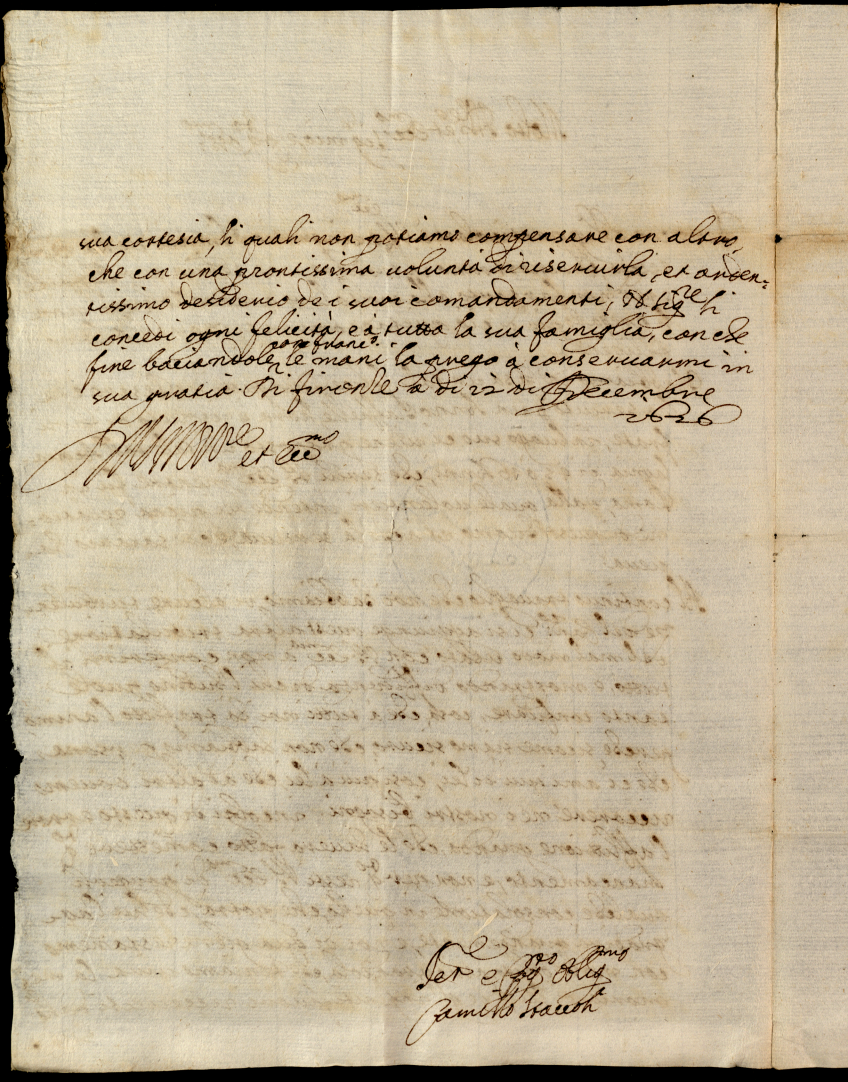 sua cortesia, li quali non potiamo compensare con altro,
che con una prontissima uolunta di riseruirla, et arden-
tissimo desiderio de i suoi comandamenti, Il Sig.re li
concedi ogni felicità, e à tutta la sua famiglia, con che
fine baciandole le mani la prego à conseruarmi in
sua gratia. Di firenze a di 12 di Decembre
1626
et Ecc.mo
Ser.e e Oblig.mo
Camillo